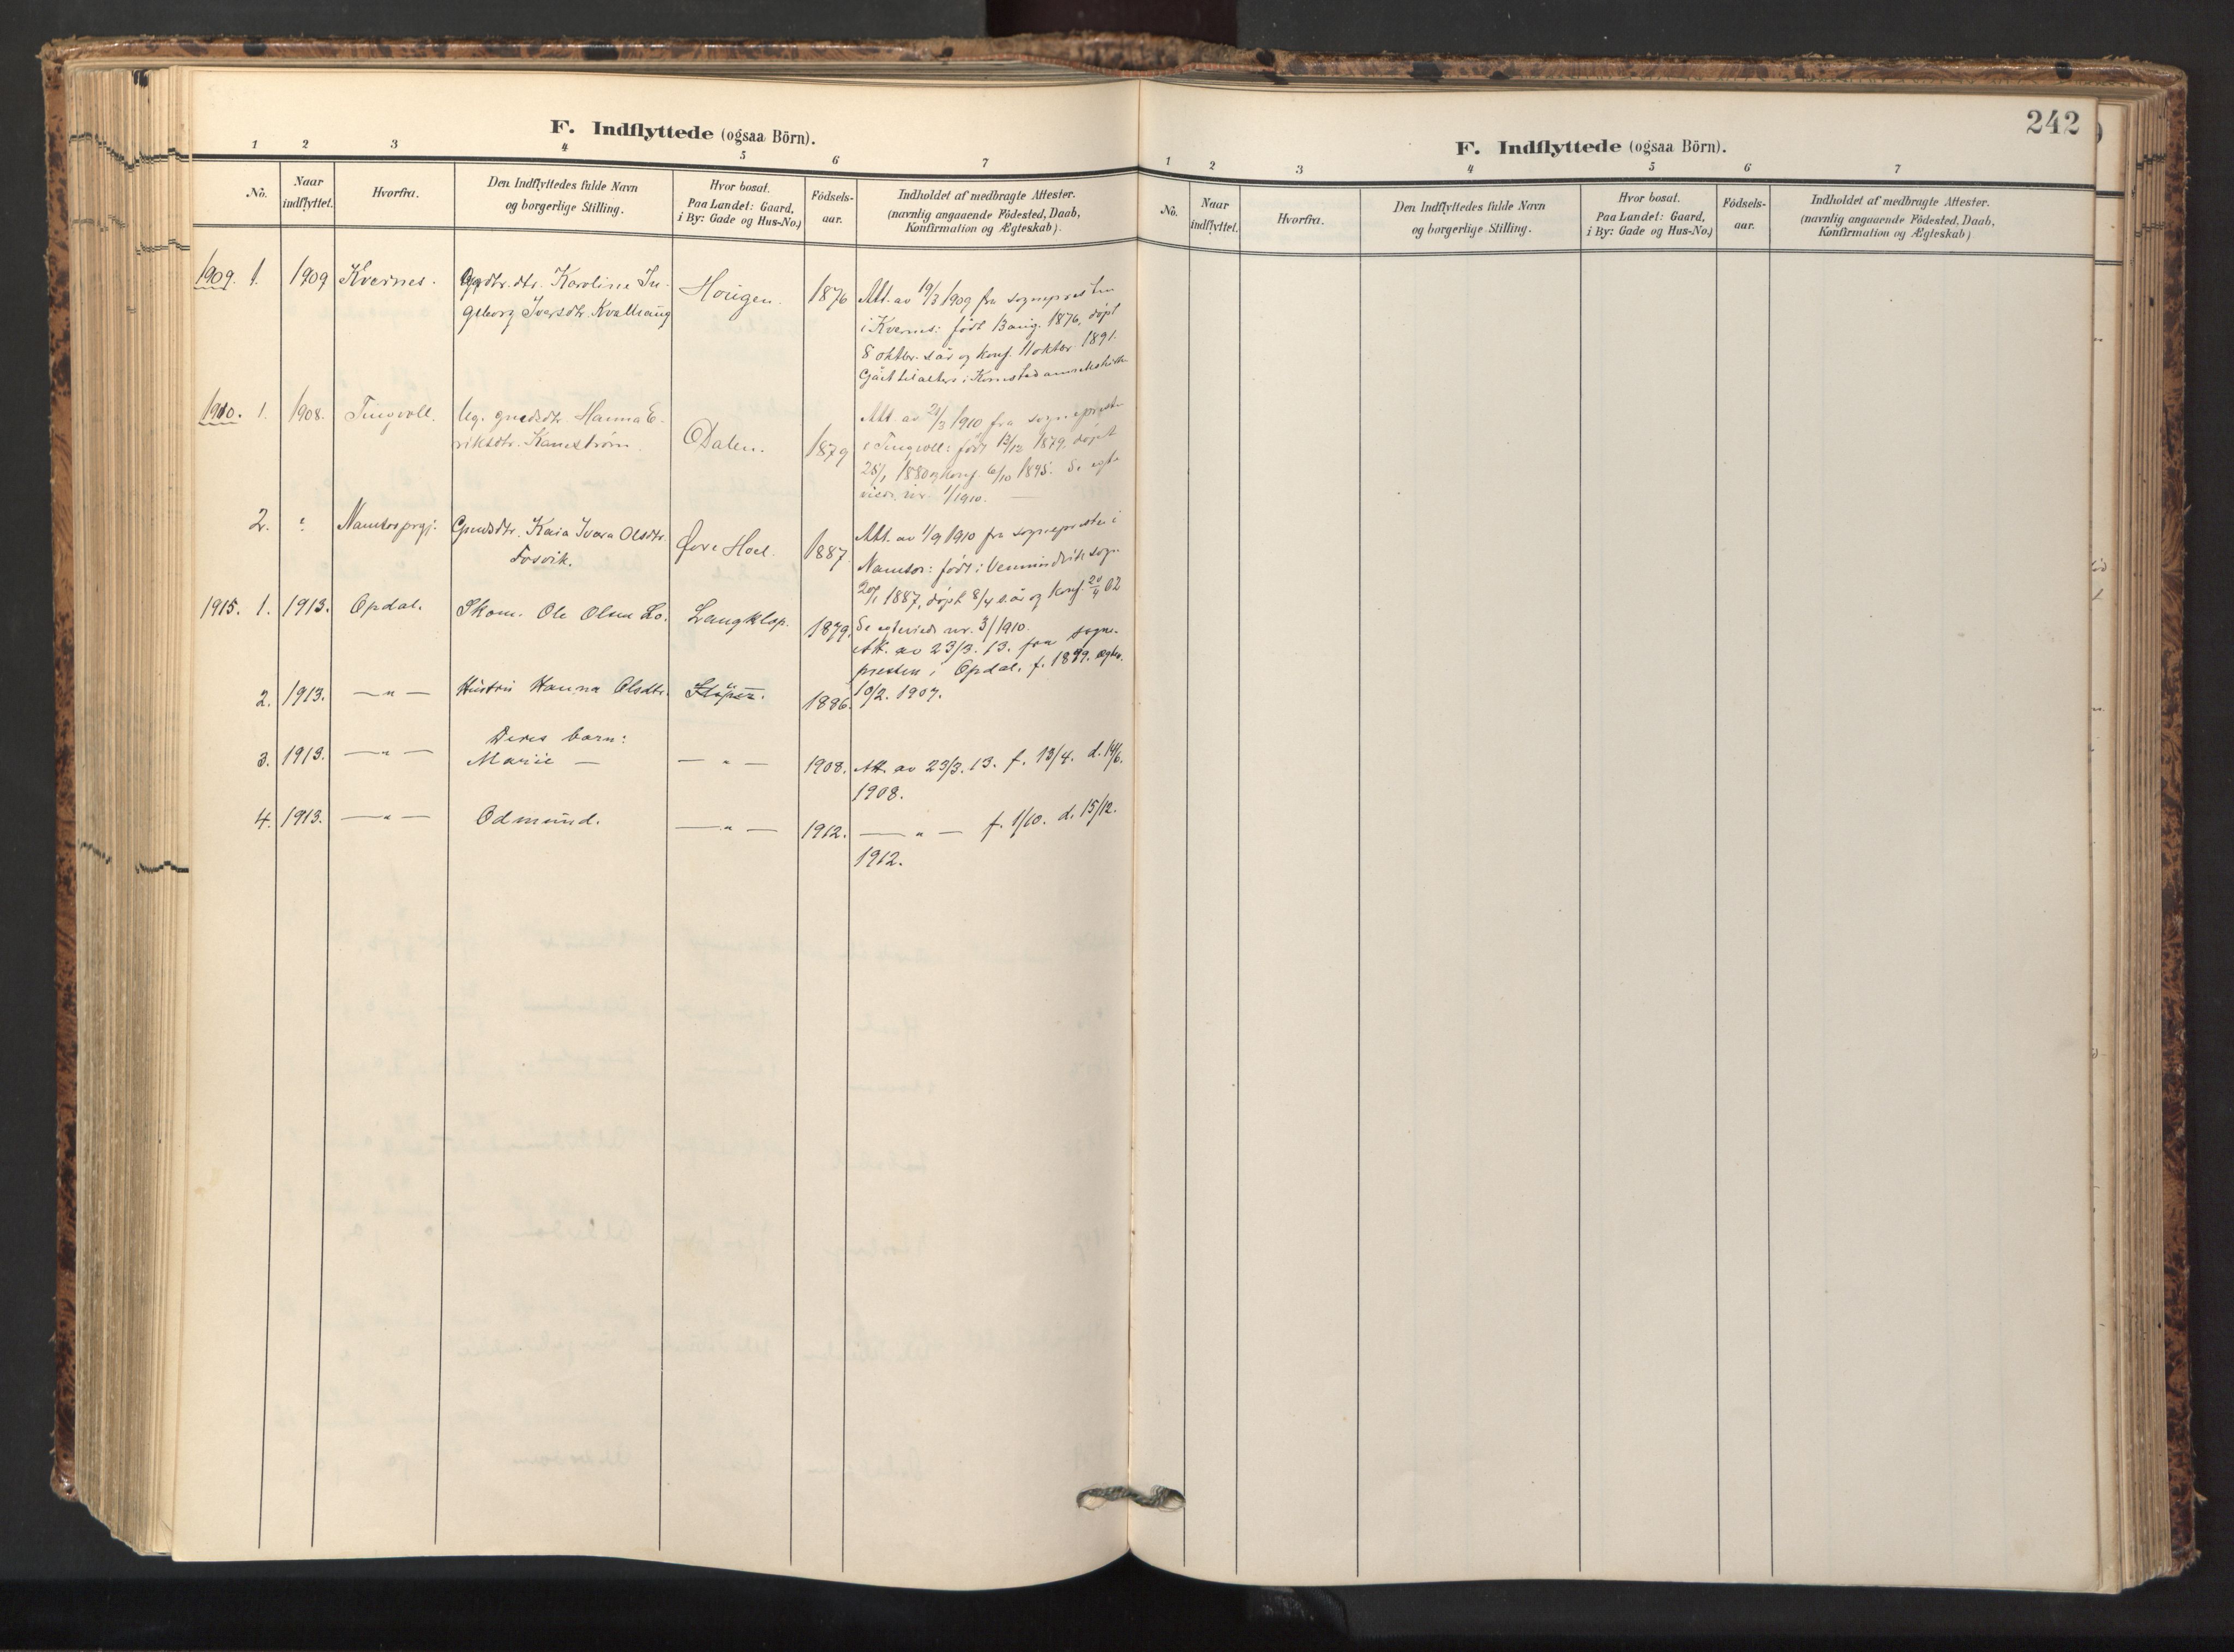 F. Indflyttede (ogsaa Börn).
1 2 3 4 5 6 7
No. Naar indflyttet. Hvorfra. Den Indflyttedes fulde Navn og borgerlige Stilling. Hvor bosat. Paa Landet: Gaard, i By: Gade og Hus-No.) Födsels-aar. Indholdet af medbragte Attester. (navnlig angaaende Födested, Daab, Konfirmation og Ægteskab).
1909. 1. 1909 Kvernes. Karoline In- Hougen. 1876 Att. av 19/3 1909 fra sognepresten
geborg Iversdtr. i Kvernes: født 13 aug. 1876, døpt
8 oktbr. s. år og konf. 11 oktbr 1891.
Gået til alters i
1910. 1. 1908. Tingvoll. Ug. grudsdtr. Hanna E- Dalen. 1879 Att. av 21/3 1910 fra sogneprest
riksdtr. Kamstrøm. i Tingvoll: født 13/12 1879, døpt
25/1 1880 og konf. 6/10 1895. Se egte
viede nr. 1/1910.
2. " Namsos prgj. Grudsdtr. Kaia Ivara Olsdtr. Øvre Hoel. 1887 Att. av 1/9 1910 fra sognepresten i
Fosvik. Namsos: født i Vemundvik sogn
20/1 1887, døpt 8/4 s. år og konf. 20/4 02
Se egteviede nr. 3/1910.
1915. 1. 1913. Opdal. Skom. Ole Olsen Lo. Langklop. 1879. Att. av 23/3. 13. fra sogne-
presten i Opdal. f. 1879. egtev.
2. 1913. — " — Hustru Hanna Olsdtr. — " — 1886. 10/2. 1907.
Deres barn:
3. 1913. — " — Marie — — " — 1908. Att. av 23/3. 13. f. 13/4. d. 14/6.
1908.
4. 1913. — " — Odmund. — " — 1912. — " — f. 1/10. d. 15/12.
1912.
242
F. Indflyttede (ogsaa Börn).
1 2 3 4 5 6 7
No. Naar indflyttet. Hvorfra. Den Indflyttedes fulde Navn og borgerlige Stilling. Hvor bosat. Paa Landet: Gaard, i By: Gade og Hus-No.) Födsels-aar. Indholdet af medbragte Attester. (navnlig angaaende Födested, Daab, Konfirmation og Ægteskab)